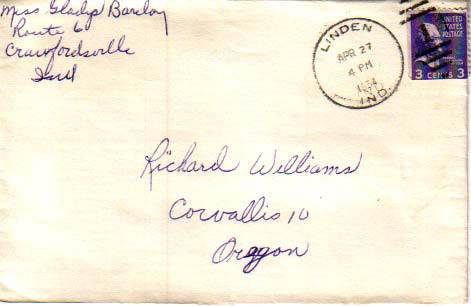 Miss Gladys Barclay
Route 6
Crawfordsville
Ind
LINDEN
APR 27
4 PM
IND.
UNITED
STATES
POSTAGE
3 CENTS 3
Richard Williams
Corvallis 10
Oregon